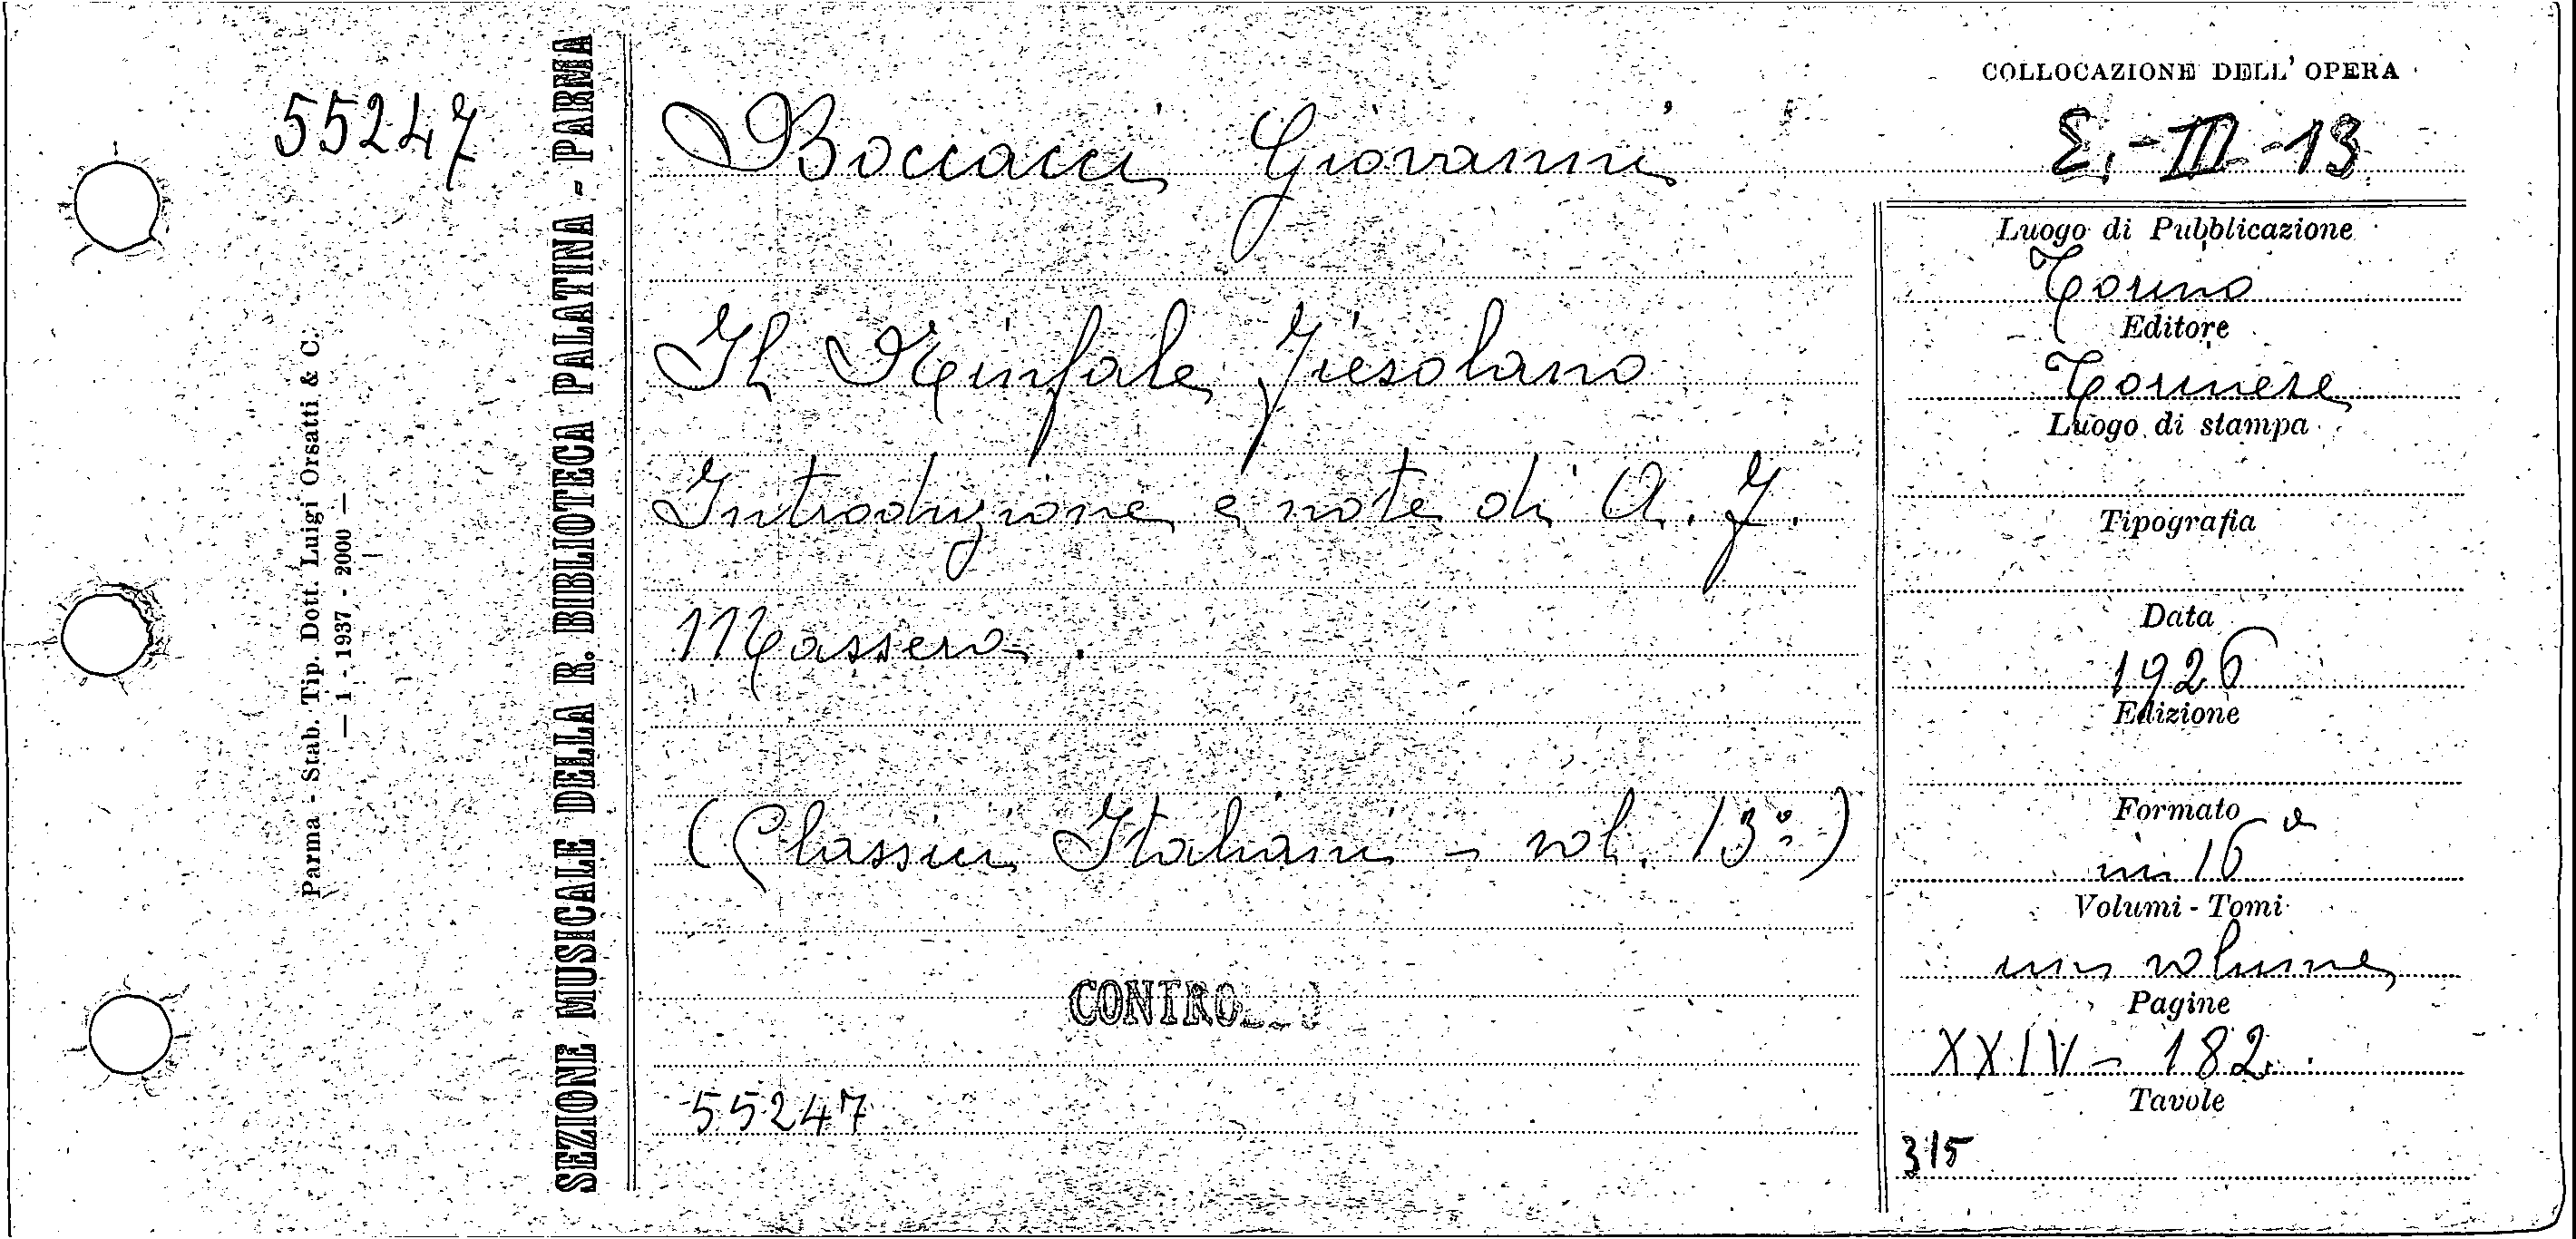 55247
Parma - Stab. Tip. Dott. Luigi Orsatti & C.
— 1 - 1937 - 2000 —
SEZIONE MUSICALE DELLA R. BIBLIOTECA PALATINA - PARMA
Boccacci Giovanni
Il Ninfale Fiesolano
Introduzione e note di A. F.
Massera.
(Classici Italiani - vol. 13º)
CONTROLLO
55247
COLLOCAZIONE DELL' OPERA
E.-III-13
Luogo di Pubblicazione
Torino
Editore
Torinese
Luogo di stampa
Tipografia
Data
1926
Edizione
Formato
in 16º
Volumi - Tomi
un volume
Pagine
XXIV - 182.
Tavole
315